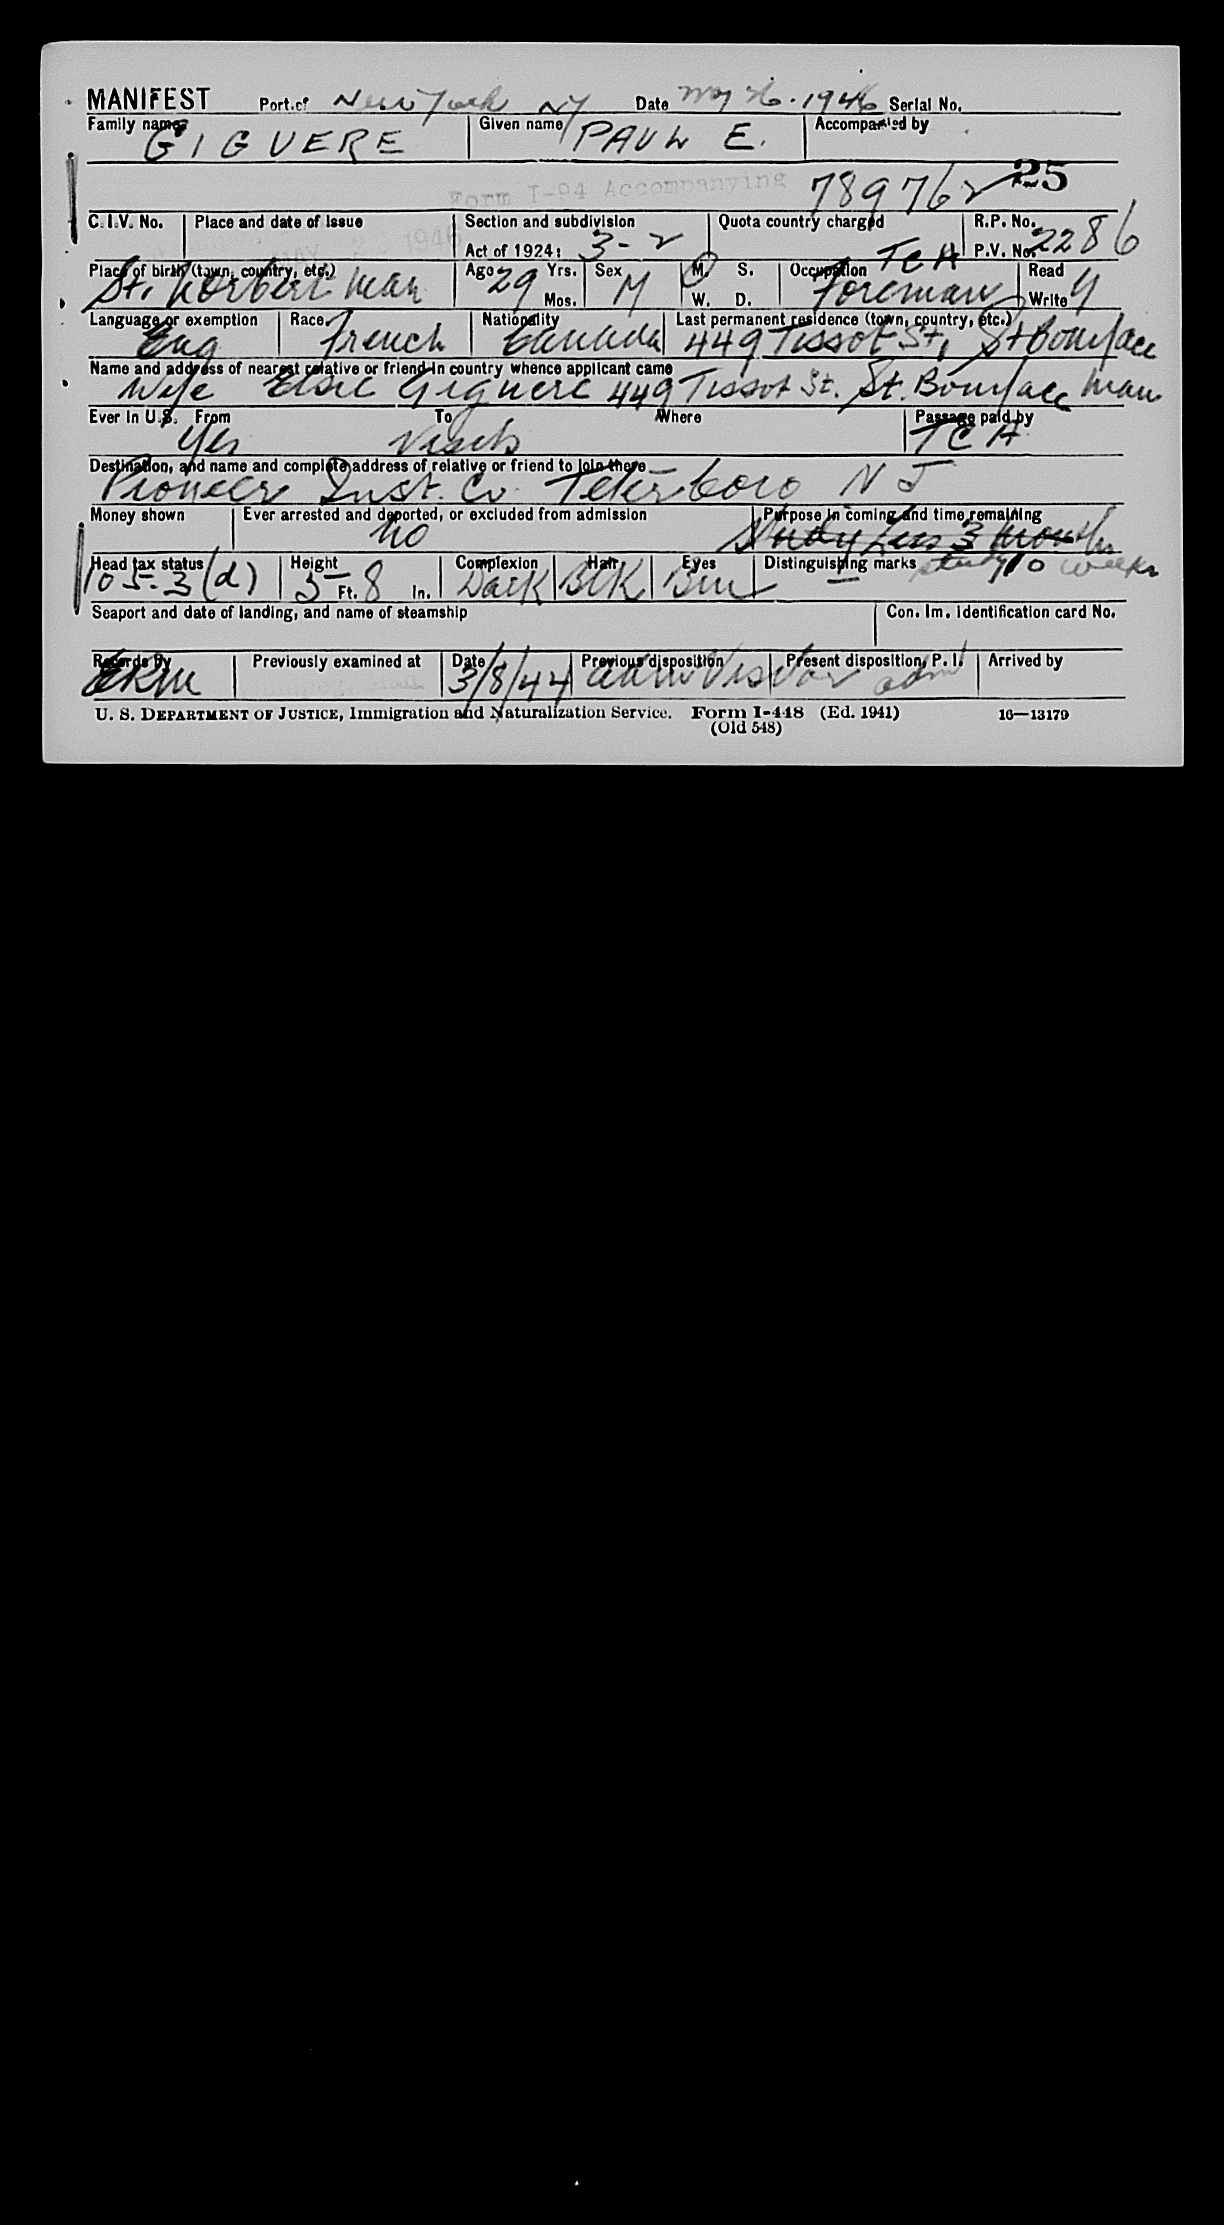 MANIFEST Port of New York NY Date May 26. 1946 Serial No.
Family name GIGUERE Given name PAUL E. Accompanied by
Form I-94 Accompanying 789762 25
C.I.V. No. Place and date of issue Section and subdivision Quota country charged R.P. No.
MAY 1946 Act of 1924: 3-2 P.V. No. 2286
Place of birth (town, country, etc.) Age 29 Yrs. Sex M M. S. Occupation TCA Read Y
St. Norbert Man Mos. W. D. Foreman Write
Language or exemption Race Nationality Last permanent residence (town, country, etc.)
Eng French Canada 449 Tissot St, St Boniface
Name and address of nearest relative or friend in country whence applicant came
Wife Elsie Giguere 449 Tissot St. St. Boniface Man
Ever in U.S. From To Where Passage paid by
Yes Visits TCA
Destination, and name and complete address of relative or friend to join there
Pioneer Inst. Co Teterboro NJ
Money shown Ever arrested and deported, or excluded from admission Purpose in coming and time remaining
No Study Less 3 months
Head tax status Height Complexion Hair Eyes Distinguishing marks study 10 weeks
105-3(d) 5 Ft. 8 In. Dark BLK Brn —
Seaport and date of landing, and name of steamship Con. Im. Identification card No.
Records By Previously examined at Date Previous disposition Present disposition, P. I. Arrived by
3/8/44 adm Visitor adm
U. S. DEPARTMENT OF JUSTICE, Immigration and Naturalization Service. Form I-448 (Ed. 1941) 16—13179
(Old 548)